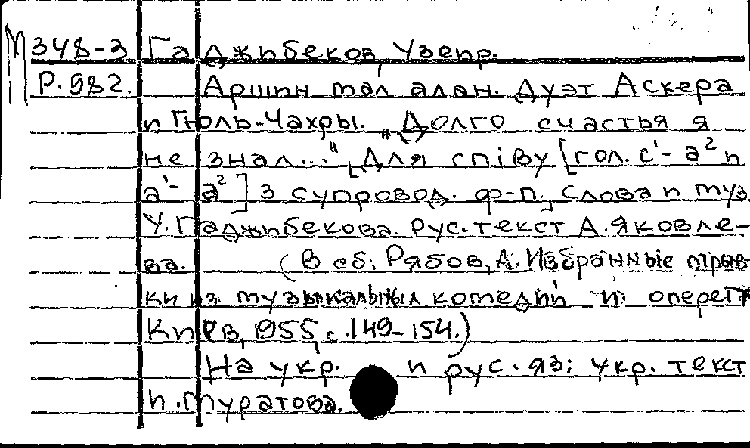 М 348-3 Гаджибеков, Узеир.
Р.982. Аршин мал алан. Дуэт Аскера
и Гюль-Чахры. „Долго счастья я
не знал..." [Для співу [гол. c¹- a² и
a¹- a²] з супровод. ф-п., слова и муз.
У. Гаджибекова. Рус. текст А. Яковле-
ва. (В сб: Рябов, А. Избранные отрыв
ки из музыкальных комедий и оперетт
Киев, 1955, с. 149-154.)
На укр. и рус. яз; укр. текст
И. Муратова.